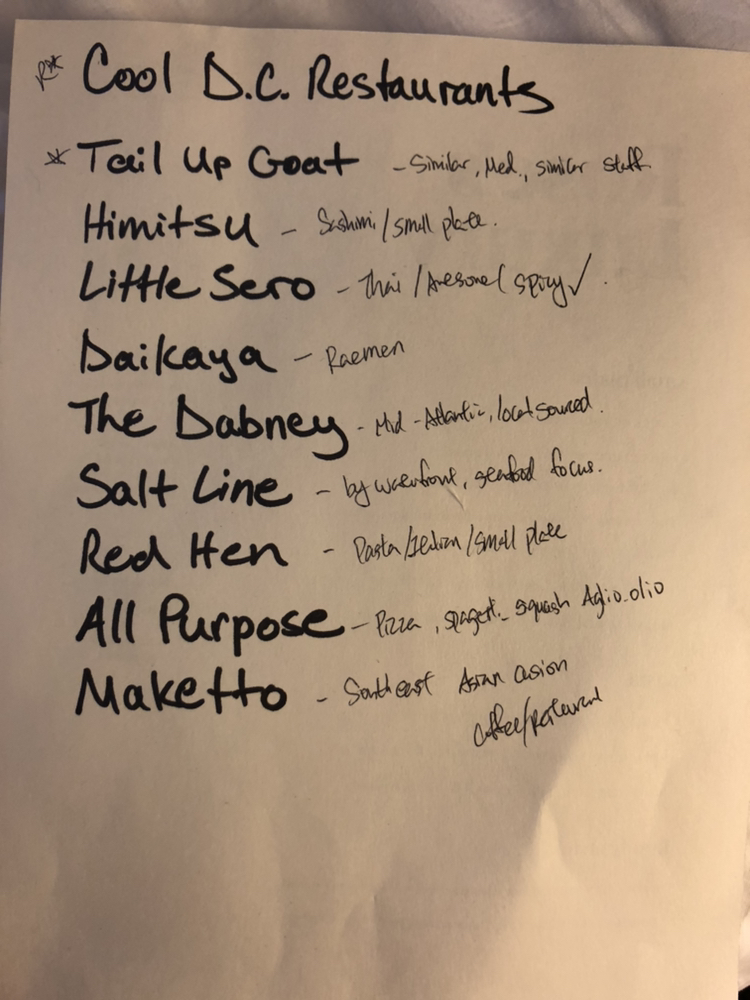 R* Cool D.C. Restaurants
* Tail Up Goat - Similar, Med., similar stuff
Himitsu - Sashimi/small plate.
Little Sero - Thai/Awesome/spicy ✓.
Daikaya - Raemen
The Dabney - Mid-Atlantic, local sourced.
Salt Line - by waterfront, seafood focus.
Red Hen - Pasta/Italian/small plate
All Purpose - Pizza, spagetti squash Aglio olio
Maketto - Southeast Asian asion
coffee/restaurant